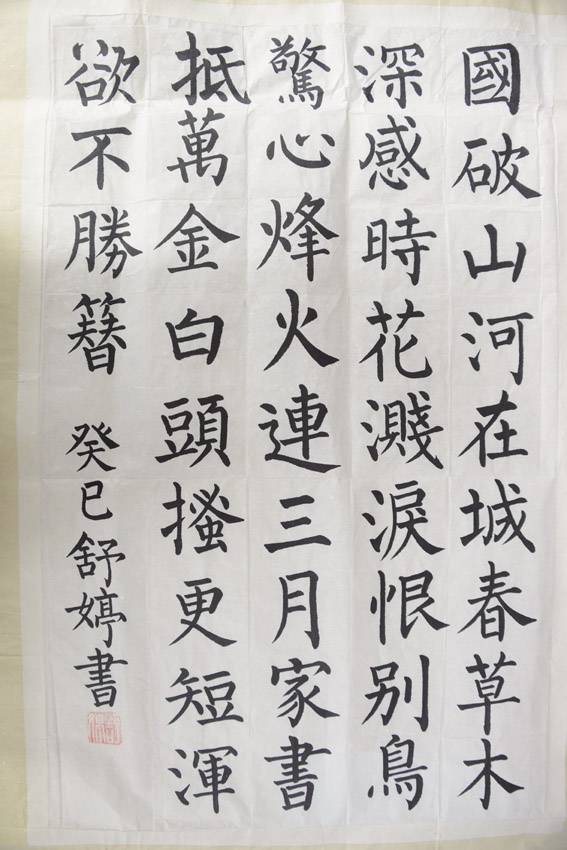 國破山河在城春草木
深感時花濺淚恨别鳥
驚心烽火連三月家書
抵萬金白頭搔更短渾
欲不勝簪
癸巳舒婷書